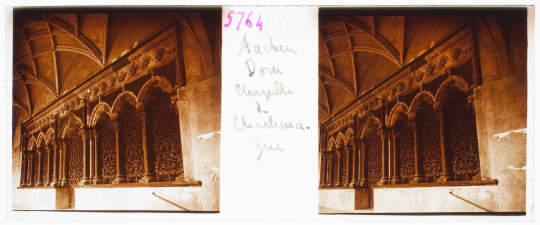 5764
Aachen
Dom
Chapelle
de
Charlema-
gne